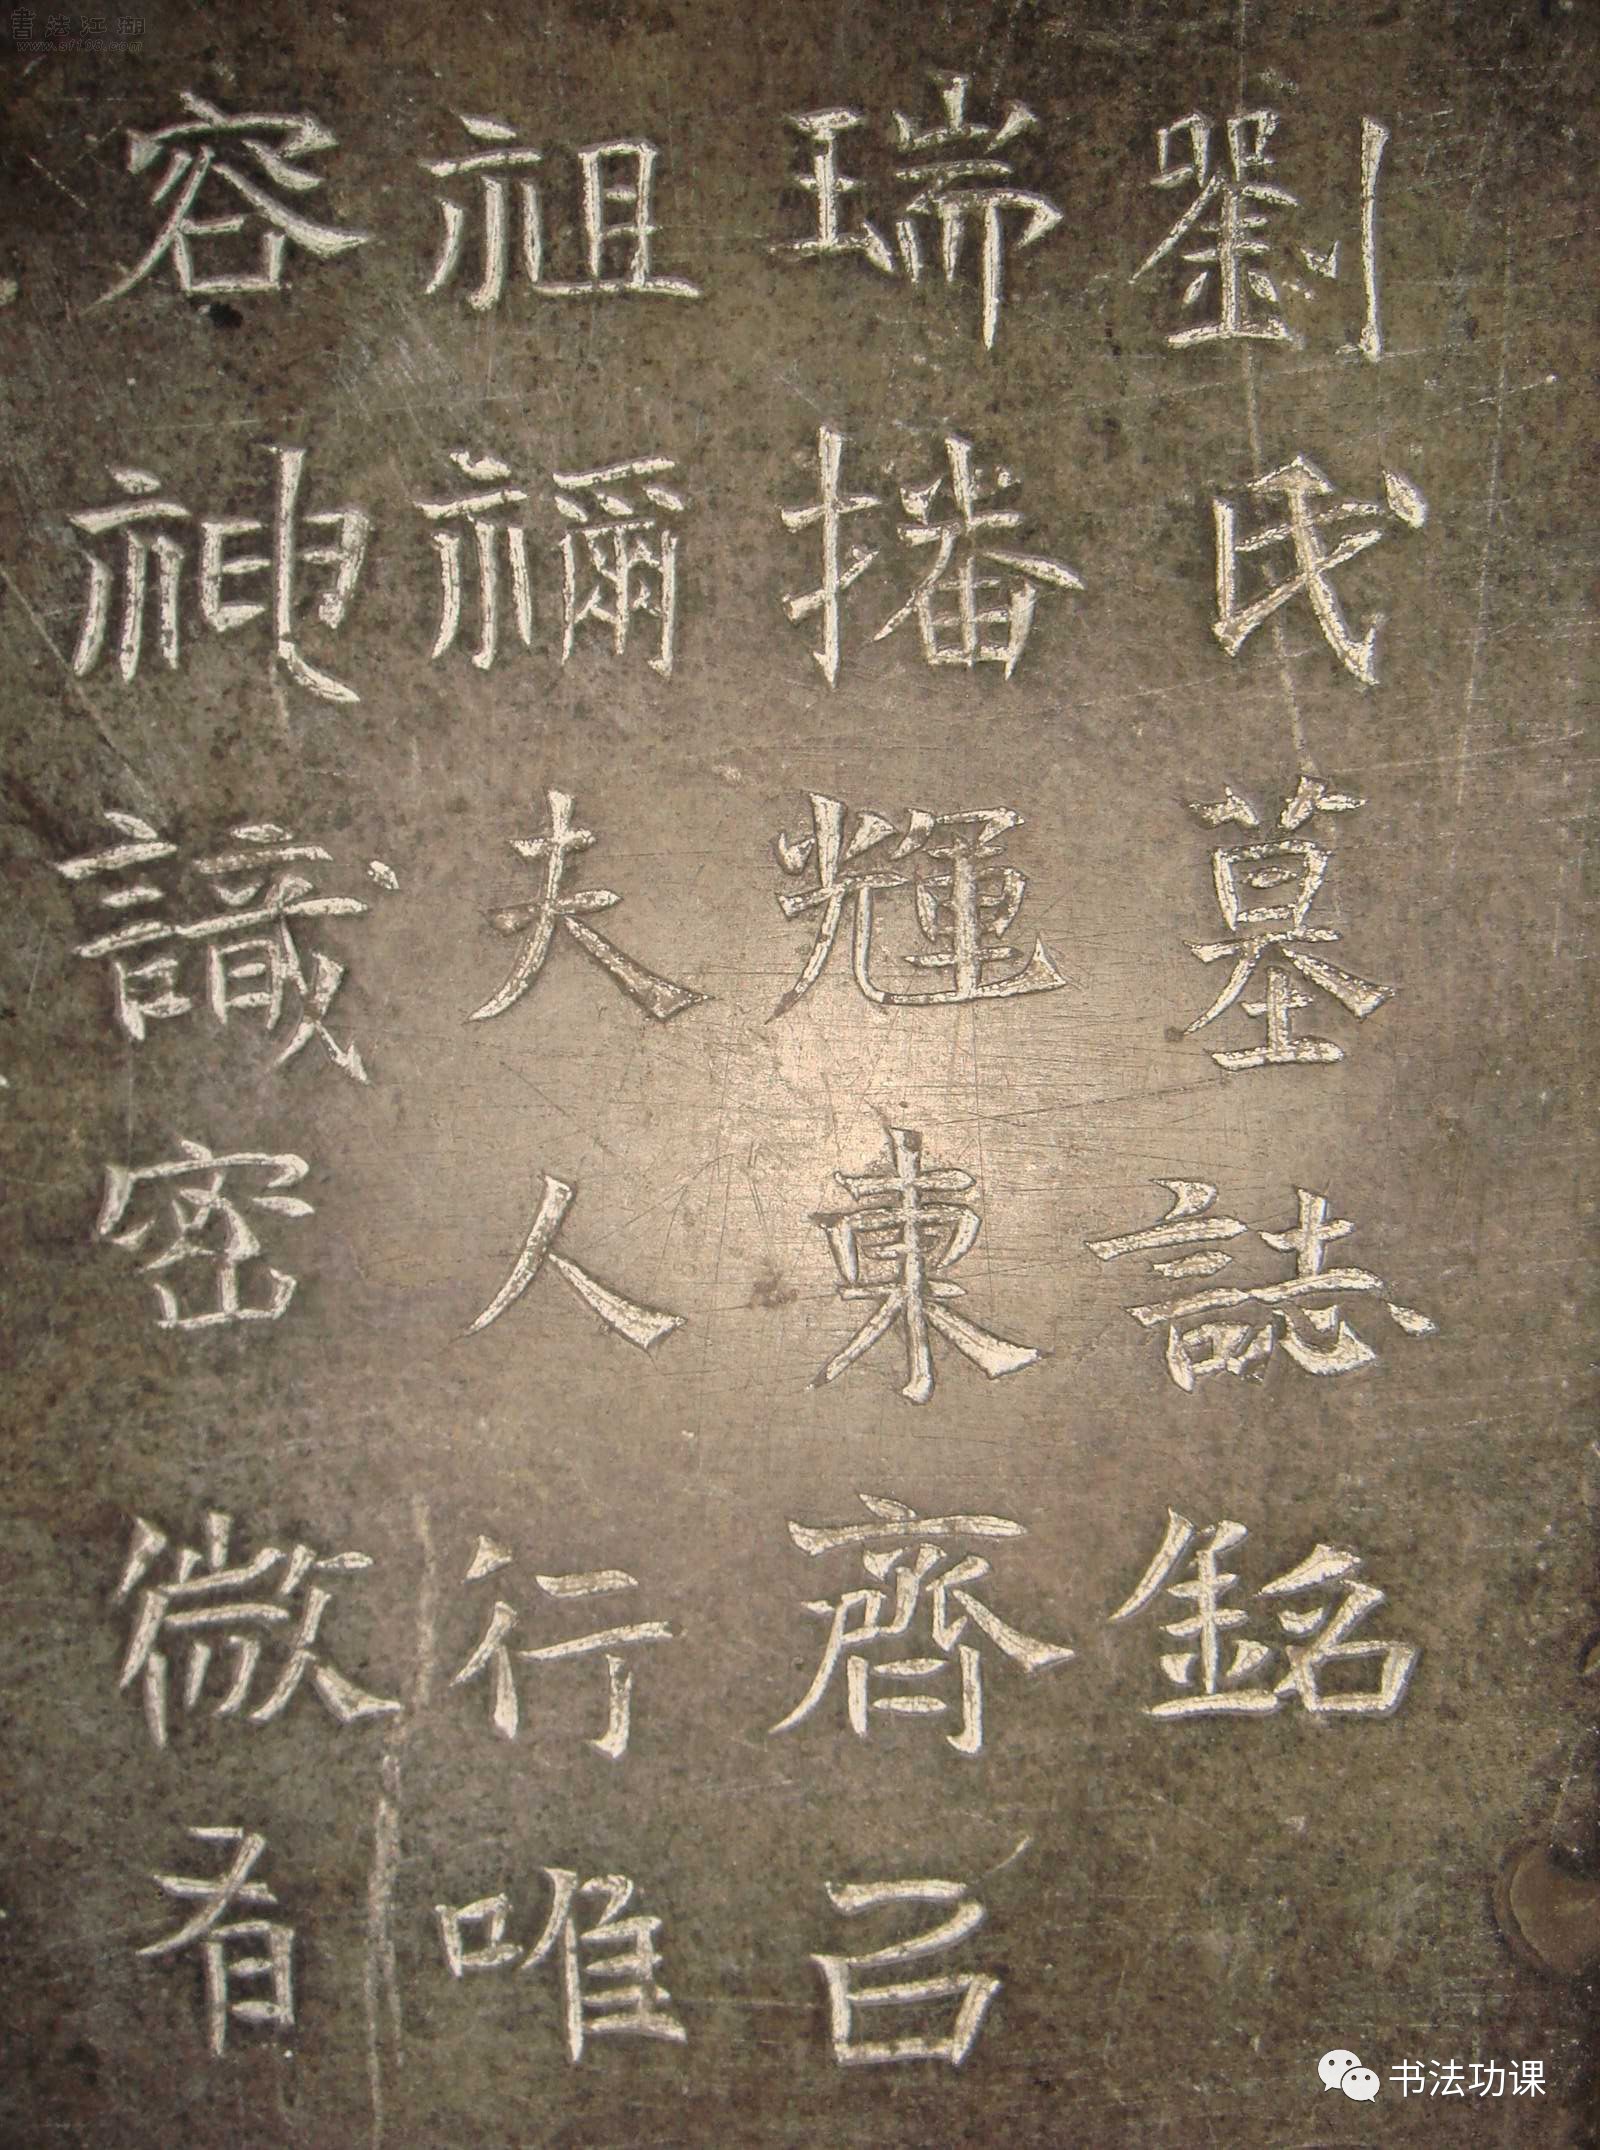 劉氏墓誌銘
瑞播輝東齊
祖禰夫人行唯
容神識密微有
書法江湖
www.sf108.com
书法功课